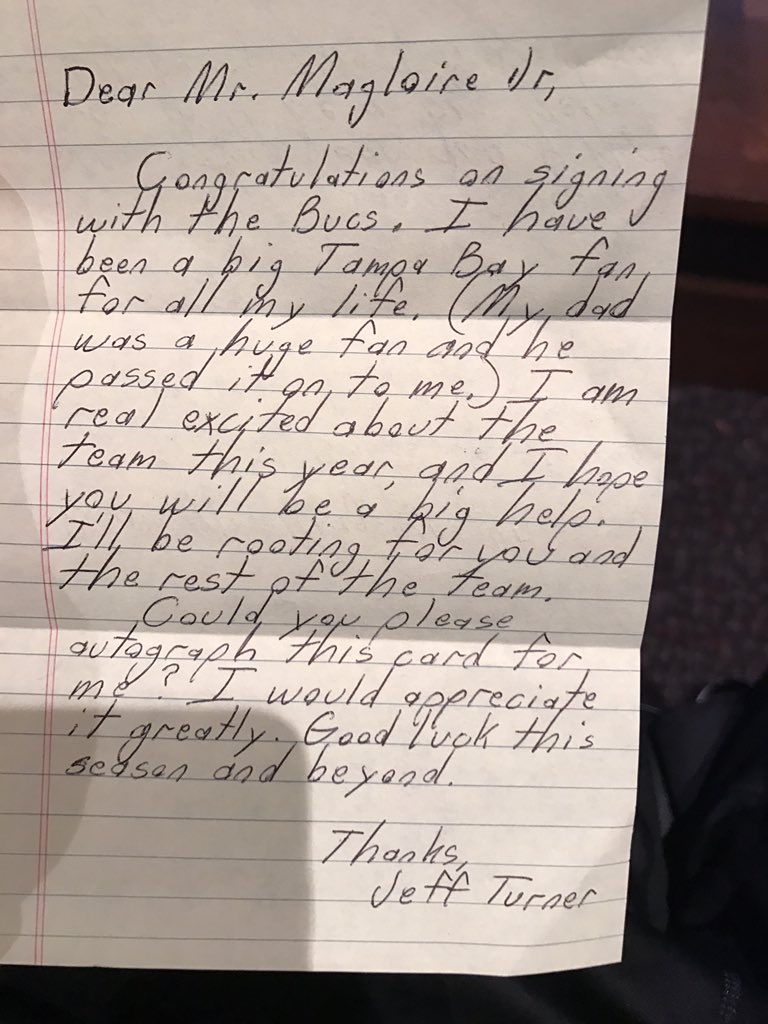 Dear Mr. Magloire Jr,
Congratulations on signing
with the Bucs. I have
been a big Tampa Bay fan
for all my life. (My dad
was a huge fan and he
passed it on to me.) I am
real excited about the
team this year, and I hope
you will be a big help.
I'll be rooting for you and
the rest of the team.
Could you please
autograph this card for
me? I would appreciate
it greatly. Good luck this
season and beyond.
Thanks,
Jeff Turner